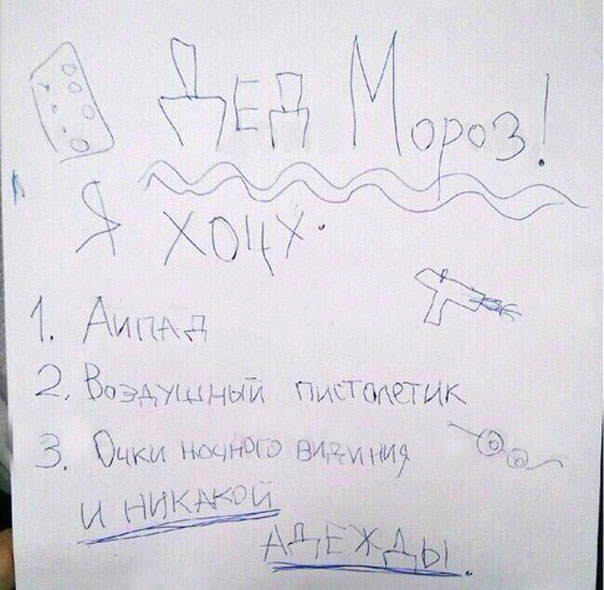 Дед Мороз!
Я хоцх.
1. Аипад
2. Воздушный пистолетик
3. Очки ночного видиния
и никакой
адежды.